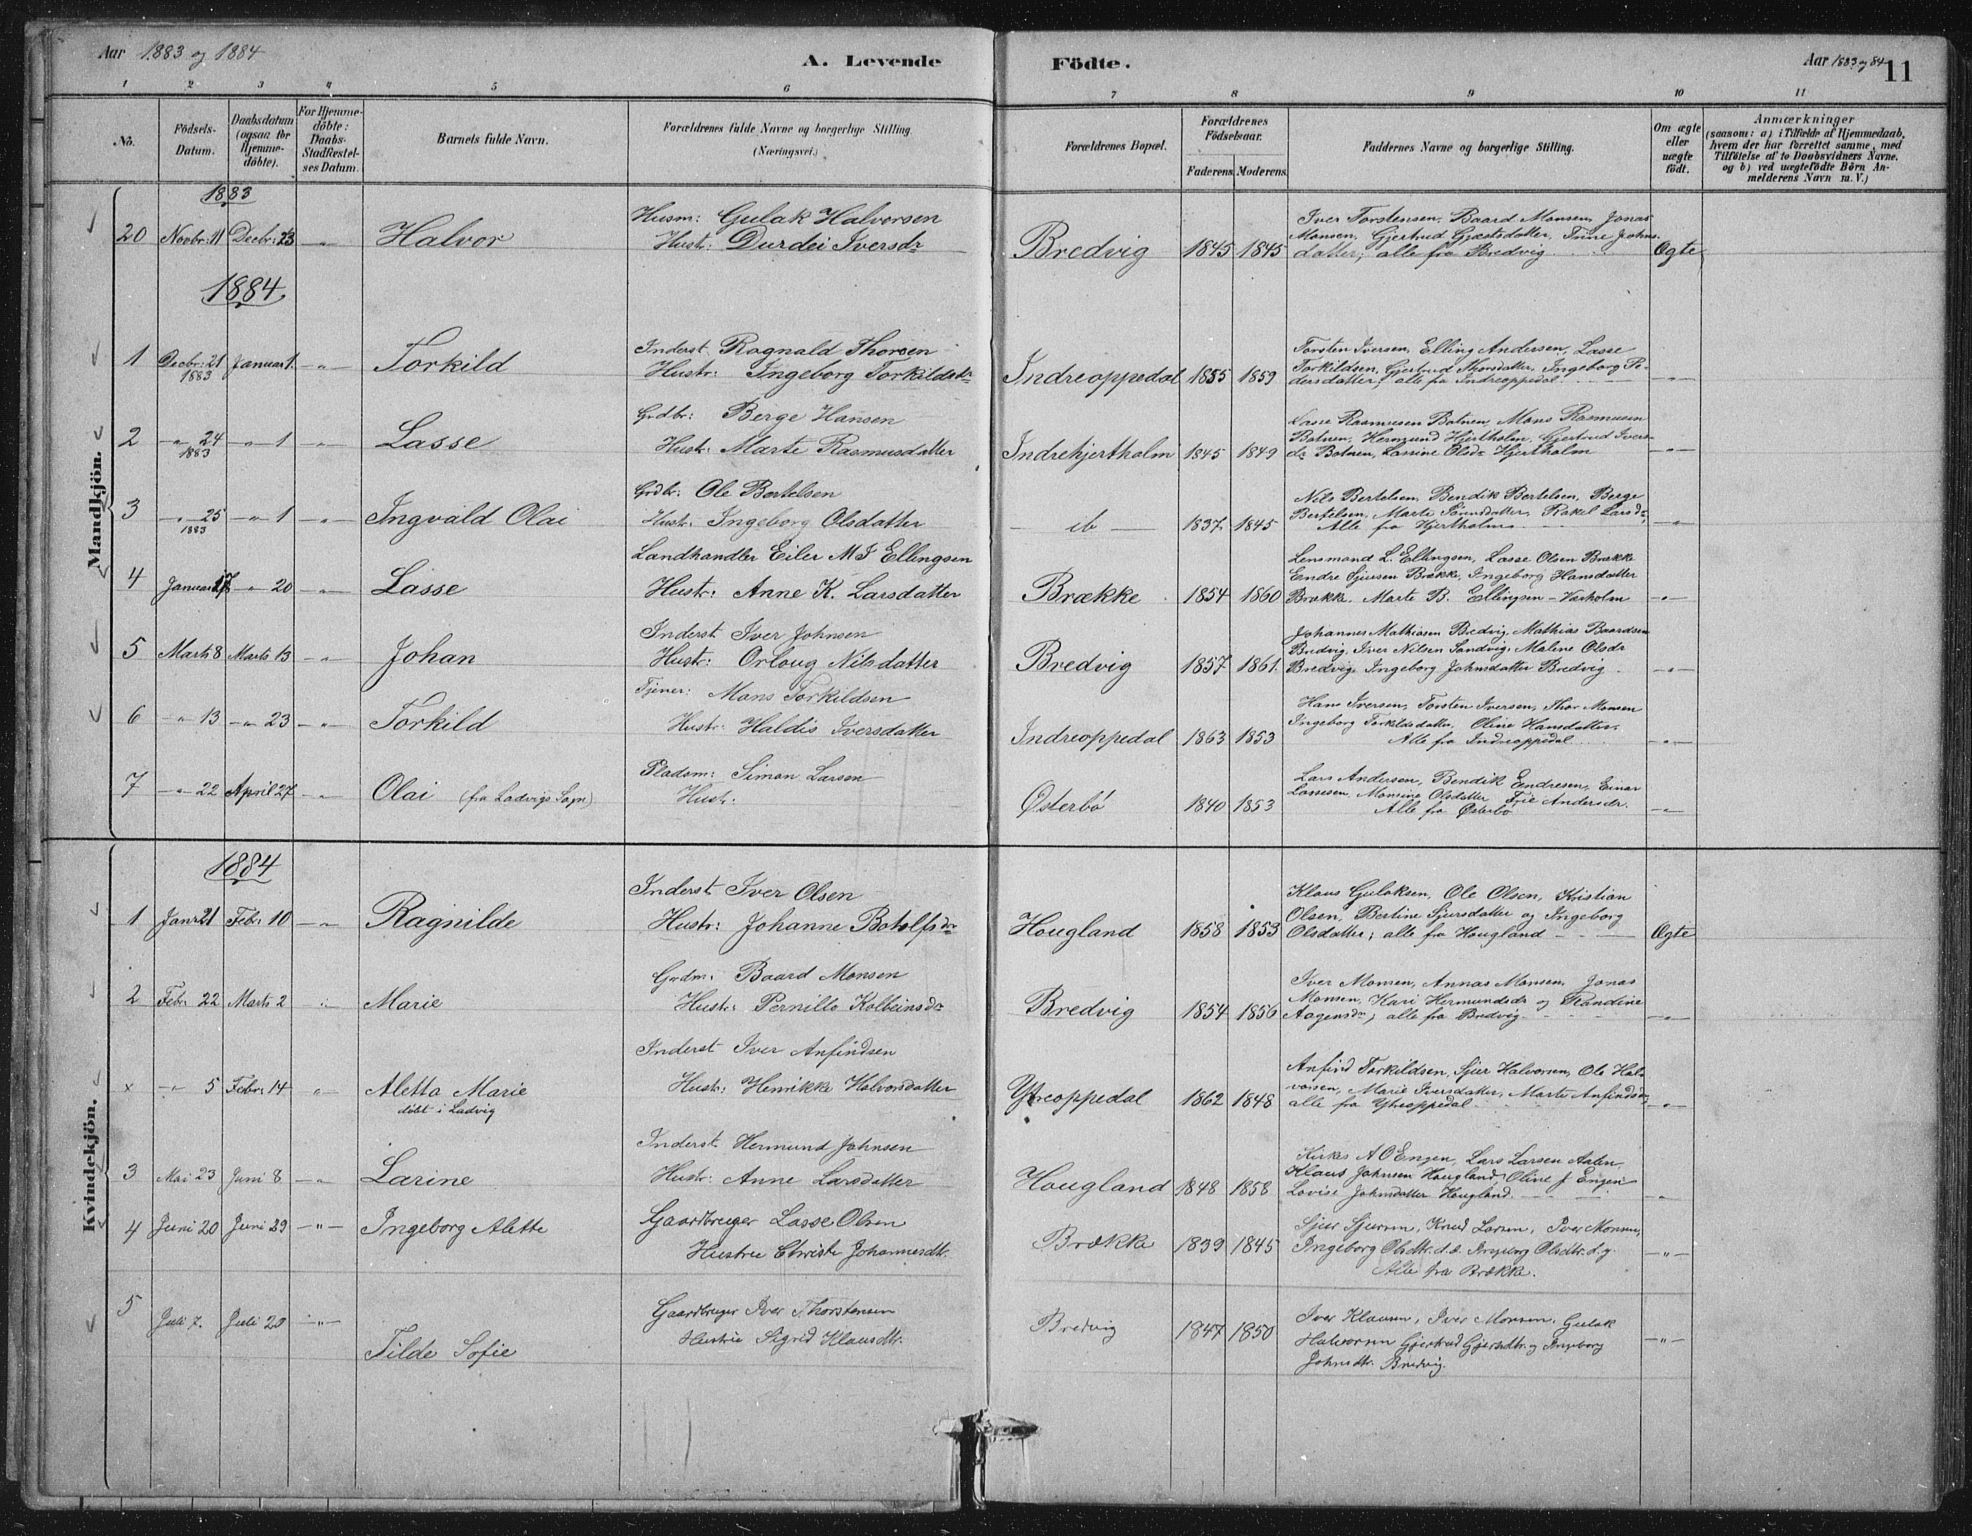 Aar 1883 og 1884
A. Levende Födte.
Aar 1883 og 84
11
1 2 3 4 5 6 7 8 9 10 11
No.
Födsels-Datum.
Daabsdatum (ogsaa for Hjemme-döbte).
For Hjemme-döbte: Daabs-Stadfæstel-ses Datum.
Barnets fulde Navn.
Forældrenes fulde Navne og borgerlige Stilling. (Næringsvei.)
Forældrenes Bopæl.
Forældrenes Födselsaar.
Faderens Moderens
Faddernes Navne og borgerlige Stilling.
Om ægte eller uægte födt.
Anmærkninger
(saasom: a) i Tilfælde af Hjemmedaab, hvem der har forrettet samme, med Tilföielse af to Daabsvidners Navne. og b) ved uægtefödte Börn Anmelderens Navn m. V.)
Mandkjön.
1883
20 Novbr: 11 Decbr: 23 -„- Halvor
Husm: Gulak Halvorsen
Hust: Durdei Iversdr
Bredvig 1845 1845
Iver Torstensen, Baard Monsen, Jonas
Monsen, Gjertrud Gjestsdatter, Trine Johns-
datter; alle fra Bredvig
Ægte
1884
1 Decbr: 21 1883 Januar 1. -„- Torkild
Inderst Ragnald Thorsen
Hustr: Ingeborg Torkildsdr
Indreoppedal 1855 1859
Torsten Iversen, Elling Andersen, Lasse
Torkildsen, Gjertrud Thorsdatter, Ingeborg Pe-
dersdatter, alle fra Indreoppedal
-„-
2 -„- 24 1883 -„- 1 -„- Lasse
Grdbr: Berge Hansen
Hust: Marte Rasmusdatter
Indrehjertholm 1845 1849
Lasse Rasmusen Botnen, Mons Rasmusen
Botnen, Hermund Hjertholm, Gjertrud Ivers-
dr Botnen, Lassine Olsdr Hjertholm
-„-
3 -„- 25 1883 -„- 1 -„- Ingvald Olai
Grdbr: Ole Bertelsen
Hust: Ingeborg Olsdatter
- ib - 1837 1845
Nils Bertelsen, Bendik Bertelsen, Berge
Bertelsen, Marte Sörensdatter, Rakel Larsdr,
Alle fra Hjertholm
-„-
4 Januar 17 -„- 20 -„- Lasse
Landhandler Eiler M J Ellingsen
Hustr: Anne K. Larsdatter
Brække 1854 1860
Lensmand L. Ellingsen, Lasse Olsen Brække
Endre Sjursen Brække, Ingeborg Hansdatter
Brække. Marte B. Ellingsen - Varholm
-„-
5 Marts 8 Marts 13 -„- Johan
Inderst Iver Johnsen
Hust: Orloug Nilsdatter
Bredvig 1857 1861
Johannes Mathiasen Bredvig, Mathias Baardsen
Bredvig, Iver Nilsen Sandvig, Maline Olsdr
Bredvig, Ingeborg Johnsdatter Bredvig
-„-
6 -„- 13 -„- 23 -„- Torkild
Tjener: Mons Torkildsen
Hust: Haldis Iversdatter
Indreoppedal 1863 1853
Hans Iversen, Torsten Iversen, Thor Monsen
Ingeborg Torkildsdatter, Oline Hansdatter,
Alle fra Indreoppedal
-„-
7 -„- 22 April 27 -„- Olai (fra Ladvigs Sogn)
Pladsm: Simon Larsen
Hust:
Østerbö 1840 1853
Lars Andersen, Bendik Eendresen, Einar
Lassesen, Monsine Olsdatter, Andersdr.
Alle fra Østerbö
-„-
Kvindekjön.
1884
1 Janr 21 Feb: 10 -„- Ragnilde
Inderst Iver Olsen
Hust: Johanne Botolfsdr
Hougland 1858 1853
Klaus Gulaksen, Ole Olsen, Kristian
Olsen, Bertine Sjursdatter og Ingeborg
Olsdatter; alle fra Hougland
Ægte
2 Feb: 22 Marts 2 Marie
Grdm: Baard Monsen
Hust: Pernille Kolbeinsdr
Bredvig 1854 1856
Iver Monsen, Annas Monsen, Jonas
Monsen, Kari Hermundsdr og Randine
Aagensdr, alle fra Bredvig
-„-
x -„- 5 Febr: 14 „ Aletta Marie
döbt i Ladvig
Inderst Iver Anfindsen
Hust: Henrikke Halvorsdatter
Ytreoppedal 1862 1848
Anfind Torkildsen, Sjur Halvorsen, Ole Hal-
vorsen, Marie Iversdatter, Marte Anfindsdr,
alle fra Ytreoppedal
-„-
3 Mai 23 Juni 8 -„- Larine
Inderst Hermund Johnsen
Hust: Anne Larsdatter
Hougland 1848 1858
Kirks A O Engen, Lars Larsen Aalen,
Klaus Johnsen Hougland, Oline J Engen
Lovise Johnsdatter Hougland
„
4 Juni 20 Juni 29 -„- Ingeborg Alette
Gaardbruger Lasse Olsen
Hustru Christi Johannesdtr.
Brække 1839 1845
Sjur Sjursen, Knud Larsen, Iver Monsen,
Ingeborg Olsdtr. d. æ. Ingeborg Olsdtr. d. y.
Alle fra Brække.
-„-
5 Juli 7. Juli 20 -„- Tilde Sofie
Gaardbruger Iver Thorstensen
Hustru Sigrid Klausdtr.
Bredvig 1847 1850
Iver Klausen, Iver Monsen, Gulak
Halvorsen Gjertrud Gjestsdtr. og Ingeborg
Johnsdtr. Bredvig.
-„-